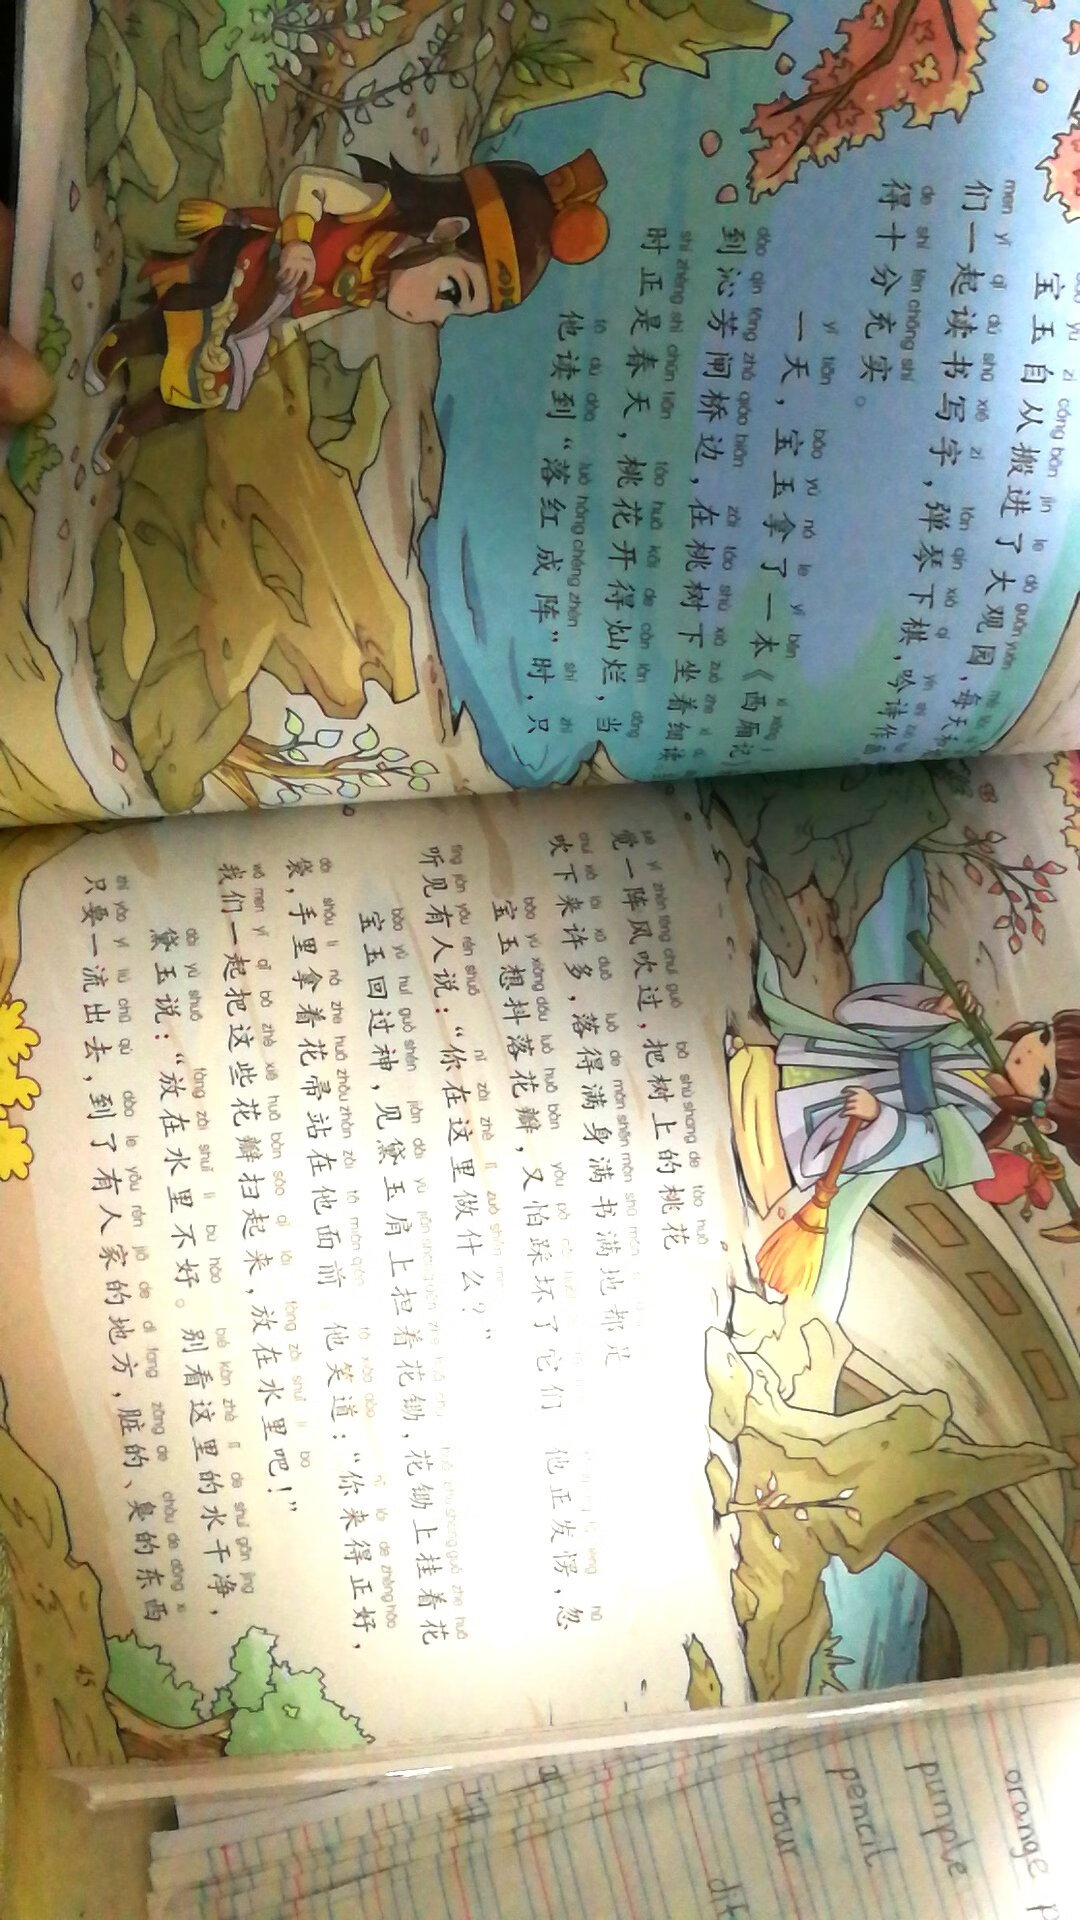 宝玉自从搬进了大观园，每天和
们一起读书写字，弹琴下棋，吟诗作画
得十分充实。
一天，宝玉拿了一本《西厢记》
到沁芳闸桥边，在桃树下坐着细读
时正是春天，桃花开得灿烂，当
他读到“落红成阵”时，只
觉一阵风吹过，把树上的桃花
吹下来许多，落得满身满书满地都是
宝玉想抖落花瓣，又怕踩坏了它们 他正发愣，忽
听见有人说：“你在这里做什么？”
宝玉回过神，见黛玉肩上担着花锄，花锄上挂着花
袋，手里拿着花帚站在他面前 他笑道：“你来得正好，
我们一起把这些花瓣扫起来，放在水里吧！”
黛玉说：“放在水里不好。别看这里的水干净，
只要一流出去，到了有人家的地方，脏的、臭的东西
45
orange
punple
pencil
four